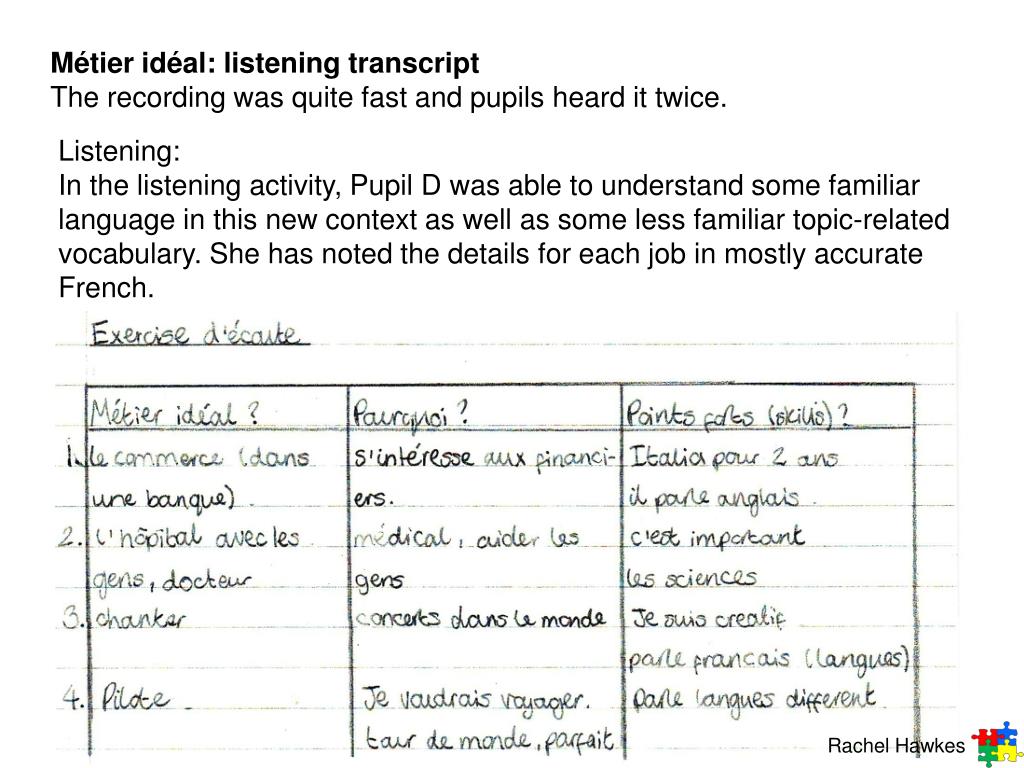 Métier idéal: listening transcript
The recording was quite fast and pupils heard it twice.
Listening:
In the listening activity, Pupil D was able to understand some familiar
language in this new context as well as some less familiar topic-related
vocabulary. She has noted the details for each job in mostly accurate
French.
Exercise d'écoute
Métier idéal ? Pourquoi ? Points forts (skills) ?
1. le commerce (dans s'intéresse aux financi- Italia pour 2 ans
une banque) . ers. il parle anglais .
2. L'hôpital avec les médical, aider les c'est important
gens, docteur gens les sciences
3. chanter concerts dans le monde Je suis creatif
parle francais (langues)
4. Pilote . Je voudrais voyager. parle langues different
tour de monde, parfait
Rachel Hawkes